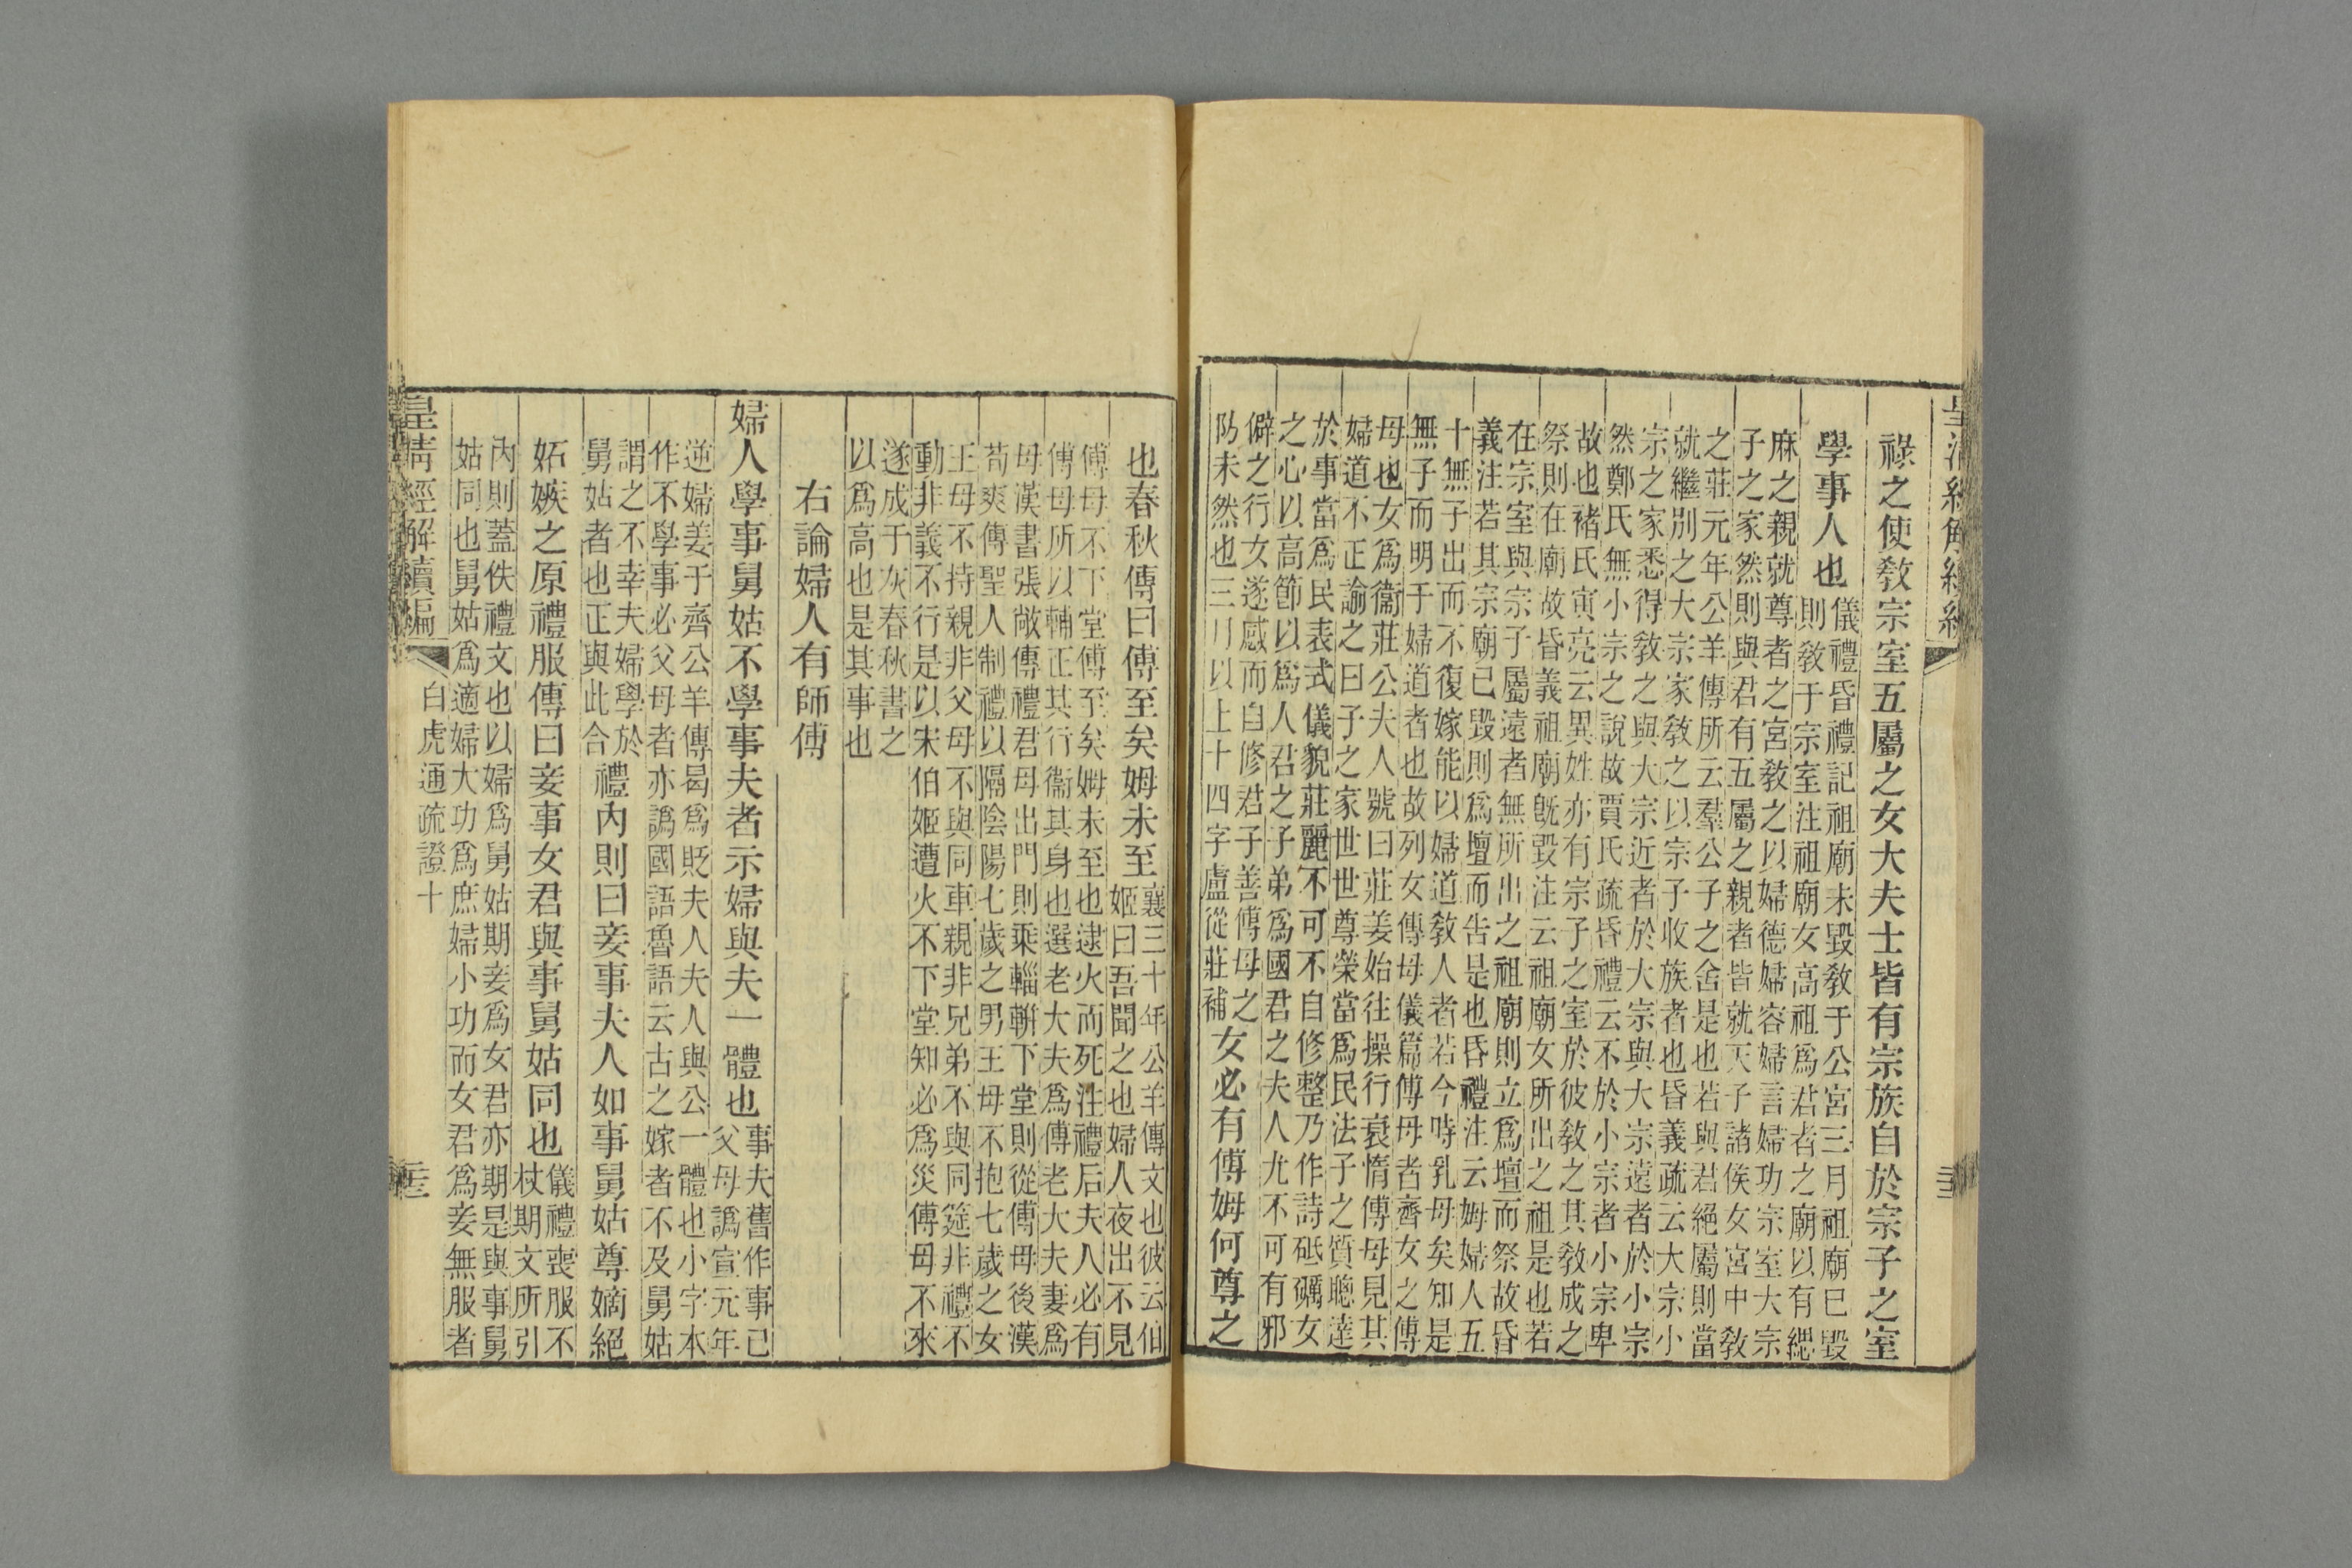 祿之使敎宗室五屬之女大夫士皆有宗族自於宗子之室
學事人也
儀禮昏禮記祖廟未毀敎于公宮三月祖廟已毀
則敎于宗室注祖廟女高祖爲君者之廟以有緦
麻之親就尊者之宮敎之以婦德婦容婦言婦功宗室大宗
子之家然則與君有五屬之親者皆就天子諸侯女宮中敎
之莊元年公羊傳所云羣公子之舍是也若與君絕屬則當
就繼別之大宗家敎之以宗子收族者也昏義疏云大宗小
宗之家悉得敎之與大宗近者於大宗與大宗遠者於小宗
然鄭氏無小宗之說故賈氏疏昏禮云不於小宗者小宗卑
故也褚氏寅亮云異姓亦有宗子之室於彼敎之其敎成之
祭則在廟故昏義祖廟旣毀注云祖廟女所出之祖是也若
在宗室與宗子屬遠者無所出之祖廟則立爲壇而祭故昏
義注若其宗廟已毀則爲壇而告是也昏禮注云姆婦人五
十無子出而不復嫁能以婦道敎人者若今時乳母矣知是
無子而明于婦道者也故列女傳母儀篇傅母者齊女之傅
母也女爲衞莊公夫人號曰莊姜始往操行衰惰傅母見其
婦道不正諭之曰子之家世世尊榮當爲民法子之質聰達
於事當爲民表式儀貌莊麗不可不自修整乃作詩砥礪女
之心以高節以爲人君之子弟爲國君之夫人尤不可有邪
僻之行女遂感而自修君子善傅母之
防未然也三月以上十四字盧從莊補
女必有傅姆何尊之
也春秋傳曰傅至矣姆未至
襄三十年公羊傳文也彼云伯
姬曰吾聞之也婦人夜出不見
傅母不下堂傅至矣姆未至也逮火而死注禮后夫人必有
傅母所以輔正其行衞其身也選老大夫爲傅老大夫妻爲
母漢書張敞傳禮君母出門則乘輜軿下堂則從傅母後漢
荀爽傳聖人制禮以隔陰陽七歲之男王母不抱七歲之女
王母不持親非父母不與同車親非兄弟不與同筵非禮不
動非義不行是以宋伯姬遭火不下堂知必爲災傅母不來
遂成于灰春秋書之
以爲高也是其事也
右論婦人有師傅
婦人學事舅姑不學事夫者示婦與夫一體也
事夫舊作事已
父母譌宣元年
逆婦姜于齊公羊傳曷爲貶夫人夫人與公一體也小字本
作不學事必父母者亦譌國語魯語云古之嫁者不及舅姑
謂之不幸夫婦學於
舅姑者也正與此合
禮內則曰妾事夫人如事舅姑尊嫡絕
妬嫉之原禮服傳曰妾事女君與事舅姑同也
儀禮喪服不
杖期文所引
內則蓋佚禮文也以婦爲舅姑期妾爲女君亦期是與事舅
姑同也舅姑爲適婦大功爲庶婦小功而女君爲妾無服者
皇清經解續編
白虎通疏證十